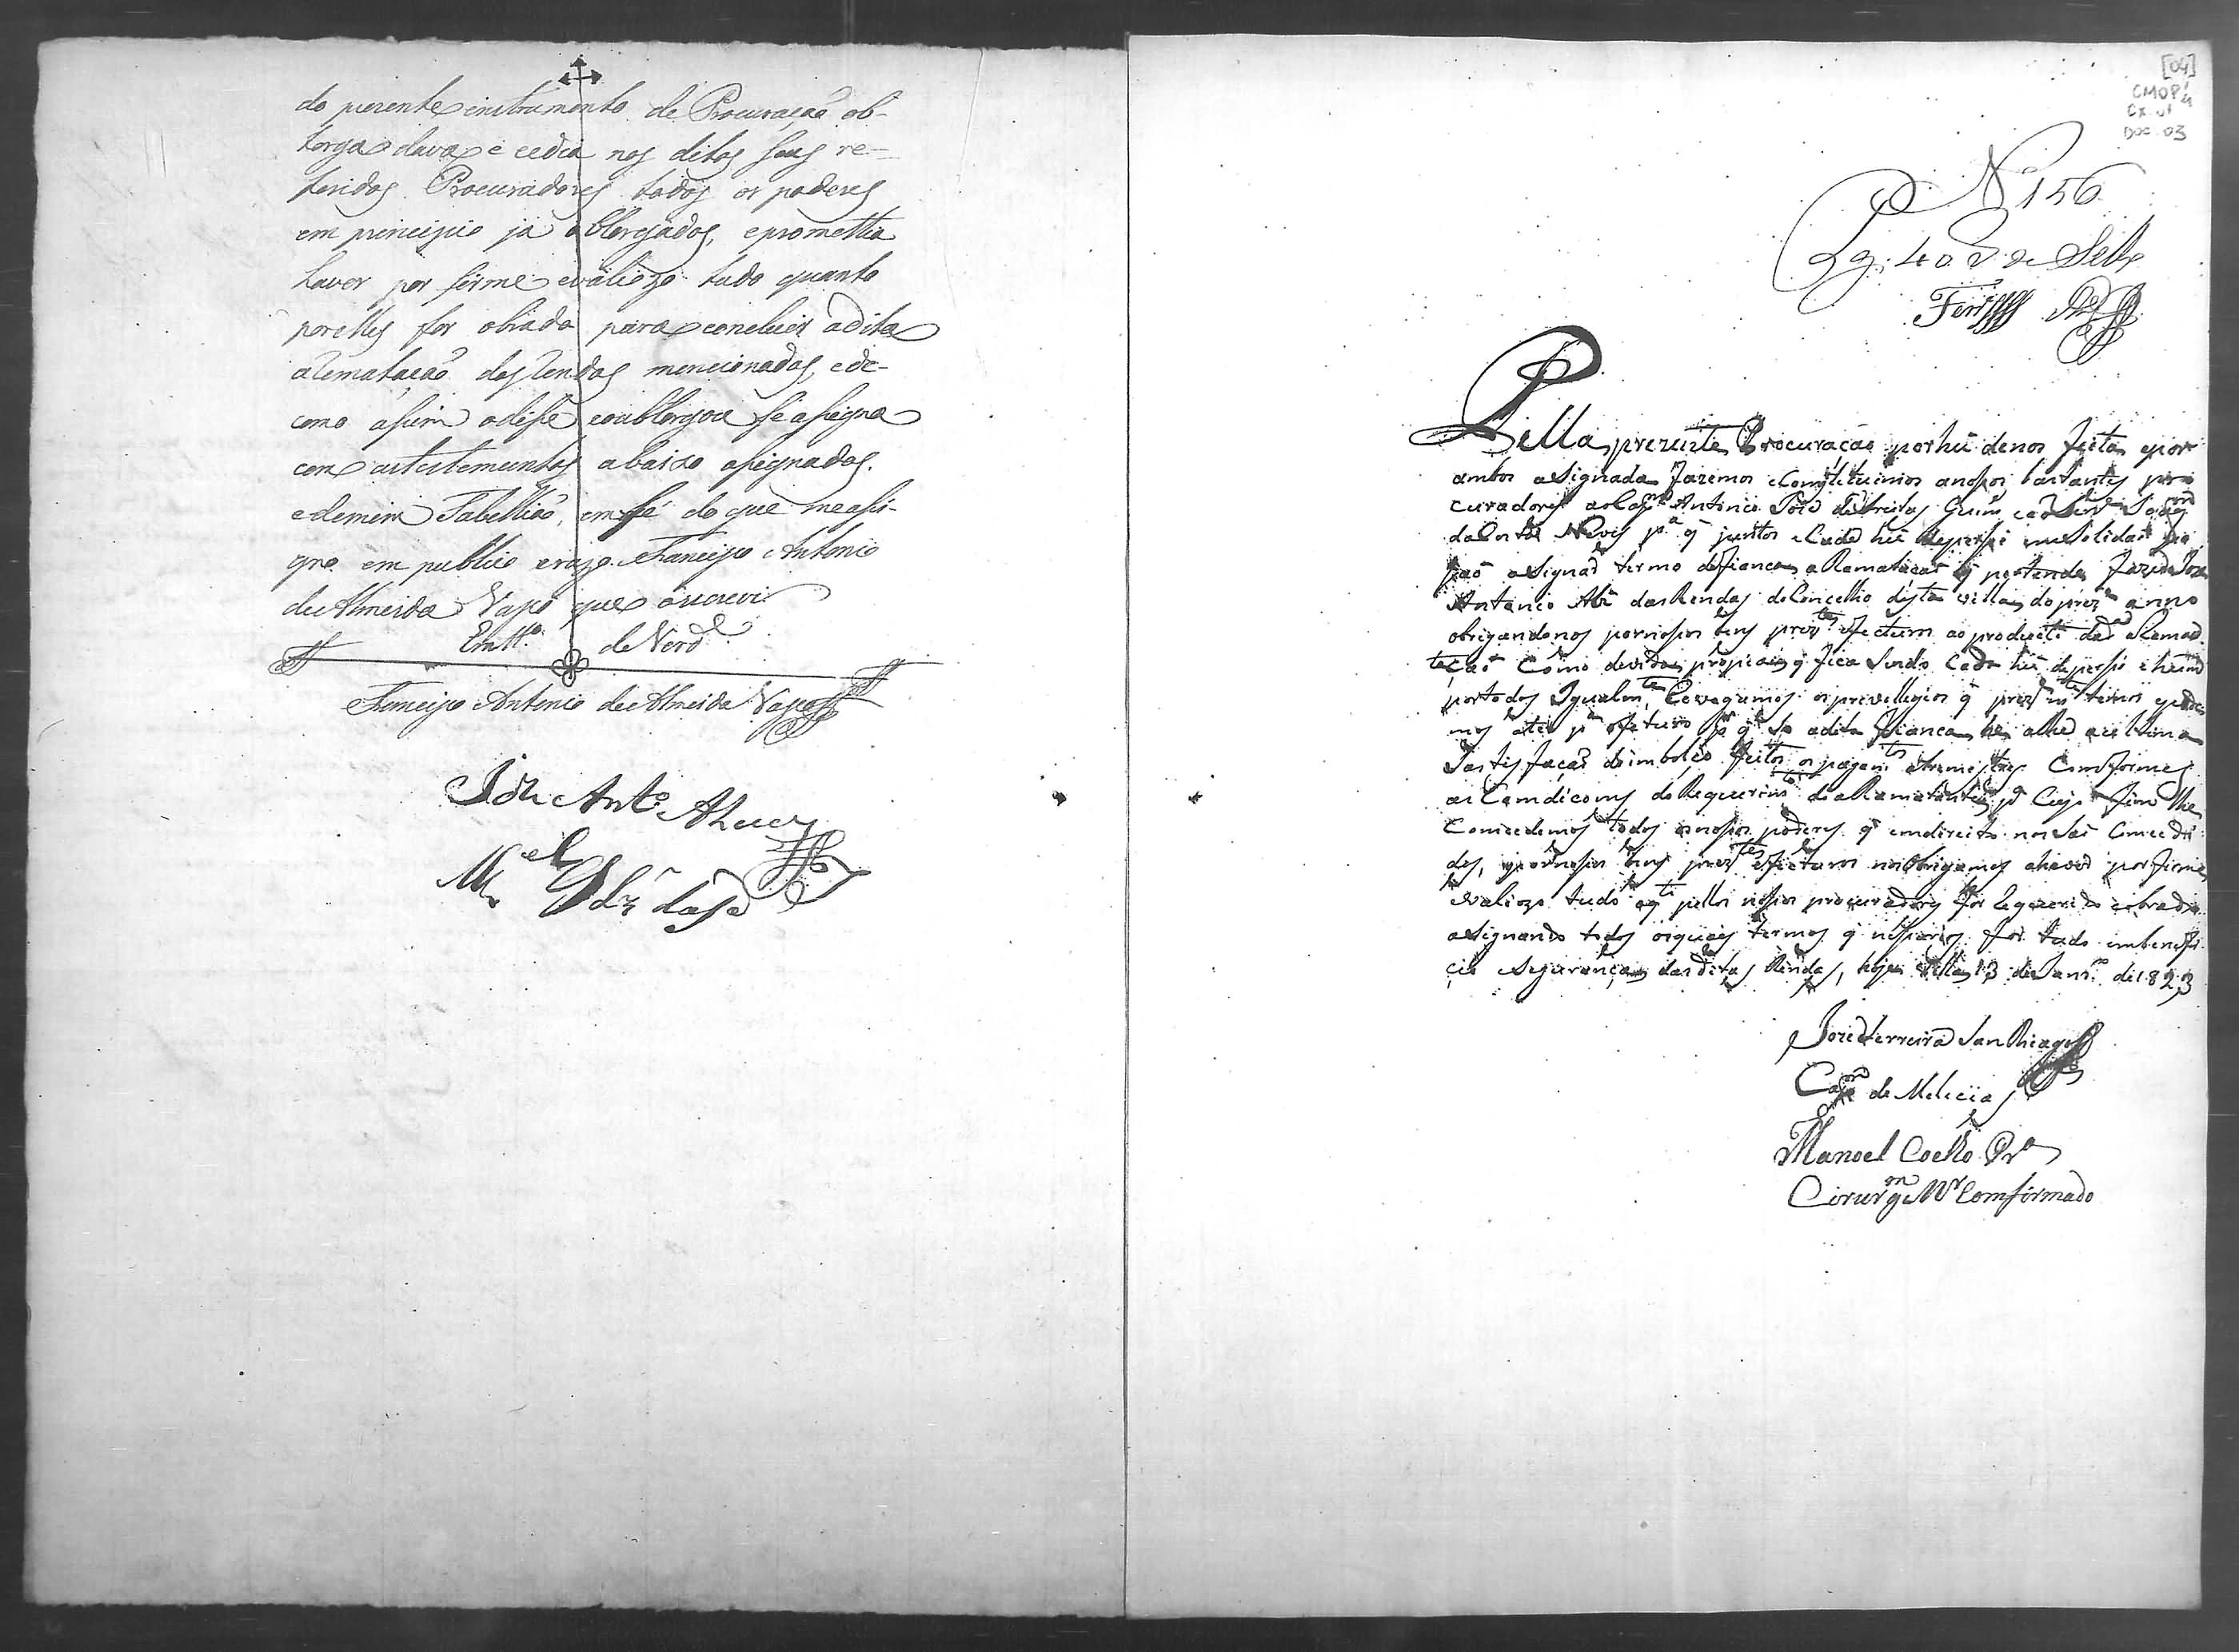 do prezente instrumento de Procuração ob-
torga dava e cedia nos ditos seus re-
feridos Procuradores todos os poderes
em principio já obtorgados, e promettia
haver por firme evaliozo tudo quanto
porelles for obrado para concluir adita
arematação des rendas mencionadas, ede-
como asim odise eoubtorgou se asigna
com astestemunhas abaixo asignadas.
edemim Tabellião, em fé do que measi-
gno em publico erazo. Francisco Antonio
de Almeida Vapo que oescrevi
Em tto. de Verd.e
Francisco Antonio de Almeida Vapo
Joze Anto. Alvez
M.el
[04]
CMOP
CX. 01
DOC. 03
No. 156
Pg. 40 rs. de Sello
Pella prezente Procuração porhũ denos feita epor
ambos asignada fazemos eComstetuimos anosos bastantes pro
curadores aoCap.m Antonio Joze deFreitas Guim.
daCosta Neves p.a q juntos eCada hũ depersi
asignar termo defianca aRamatacaõ q pertende fazer Joze
Antonio Alz dasRendas doConcelho desta villa do prez.te anno
obrigandonos pornosos bens prez.tes efecturos ao producto da Remata
tacaõ Como devidas propias q fica sendo Cada hũ depersi ehum
portodos Igualm.te Revogamos osprevillegios q prez.te temos epode
mos ater p.a ofeturo adita fianca he athe aultima
Sastisfacaõ deimbolço feitos os pagam.tos Comforme
as Comdicoins doRequerim.to doaRamatante p.a Cujo fim lhe
Comsedemos todos osnosos poderes q emdireito nos saõ Comsedi
dos, epornosos bens prez.tes efecturos nosobrigamos ahaver porfirme
evaliozo tudo oq pellos nosos procuradores for Requerido eobrado
asignando todos osquais termos q nesesarios for tudo embenefi
cio eseguranca dasditas Rendas, hoje Villa 13 deJanr.o de1823
Joze Ferreira SanThiago
Cap.m de Melicias
Manoel Coelho Pr.a
Cirurg.m Mr Comfirmado